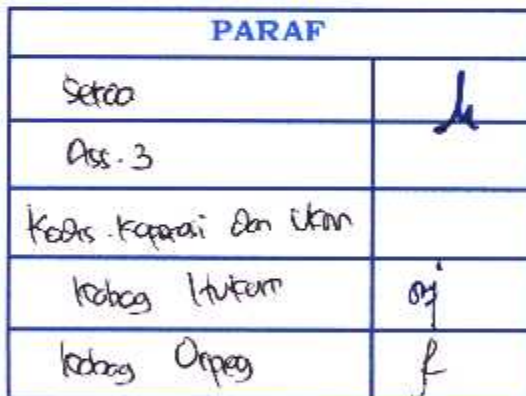 PARAF
Setda
Ass. 3
Kadis. Koperasi dan Ukm
Kabag Hukum
Kabag Orpeg